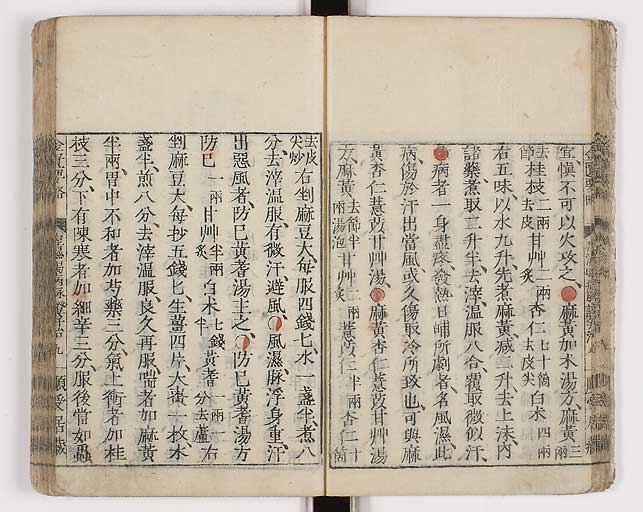 宜愼不可以火攻之、麻黄加朮湯方麻黄三兩
去節桂枝二兩去皮甘艸一兩炙杏仁七十箇去皮尖白朮四兩
右五味以水九升先煮麻黄減二升去上沫内
諸藥煮取二升半去滓温服八合覆取微似汗、
病者一身盡疼發熱日晡所劇者名風濕、此
病傷於汗出當風或久傷取冷所致也可與麻
黄杏仁薏苡甘艸湯、麻黄杏仁薏苡甘艸湯
方麻黄去節半兩湯泡甘艸一兩炙薏苡仁半兩杏仁十箇
去皮尖炒右剉麻豆大每服四錢七水一盞半煮八
分去滓温服有微汗避風、風濕、脉浮身重汗
出惡風者、防已黄耆湯主之、防已黄耆湯方
防已一兩甘艸半兩炙白朮七錢半黄耆一兩一分去蘆右
剉麻豆大每抄五錢匕生薑四片大棗一枚水
盞半煎八分去滓温服良久再服喘者加麻黄
半兩胃中不和者加芍藥三分氣上衝者加桂
枝三分下有陳寒者加細辛三分服後當如蟲